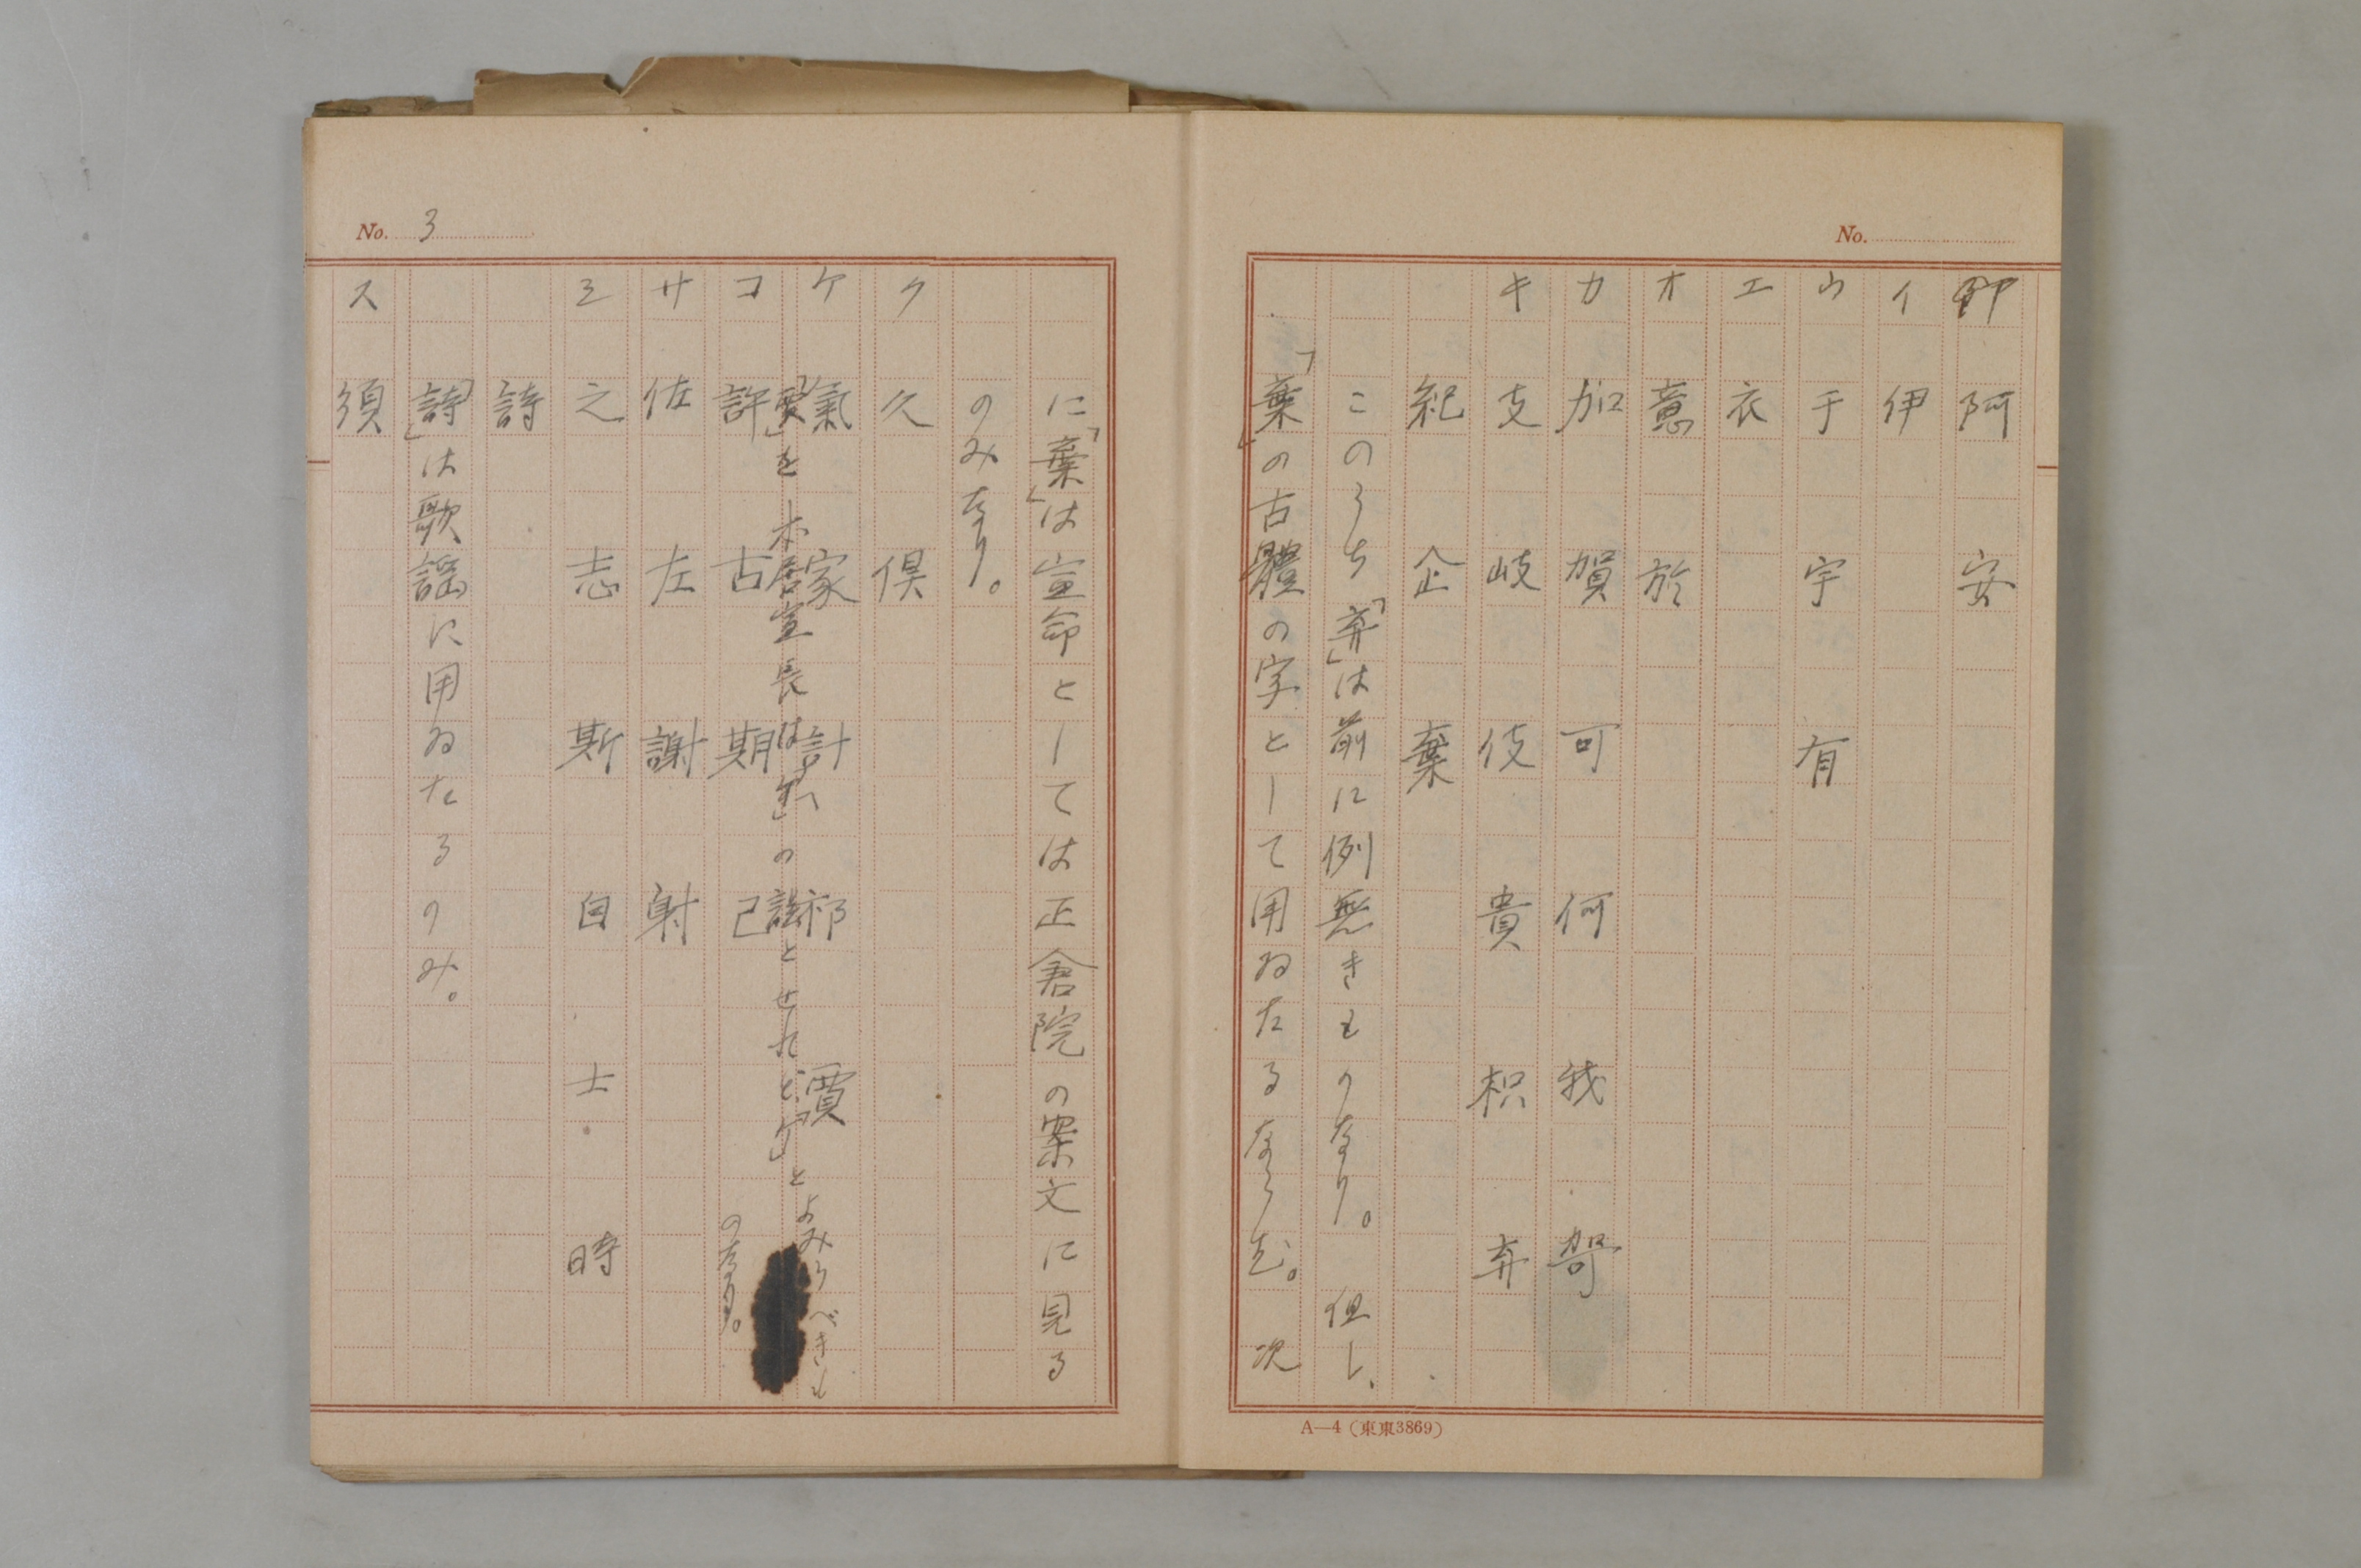 No.
ア 阿 安
イ 伊
ウ 于 宇 有
エ 衣
オ 意 於
カ 加 賀 可 何 我 哿
キ 支 岐 伎 貴 枳 弃
紀 企 棄
このうち「弃」は前に例無きものなり。但し、
「棄」の古體の字として用ゐたるならむ。次
A—4(東東3869)
No. 3
に「棄」は宣命としては正倉院の案文に見る
のみなり。
ク 久 倶
ケ 氣 家 計 祁 賈
「賈」を本居宣長は「け」の誤とせれど「ケ」とよみうべきも
のなり。
コ 許 古 期 己
サ 佐 左 謝 射
シ 之 志 斯 自 士 時
詩
「詩」は歌謡に用ゐたるのみ。
ス 須